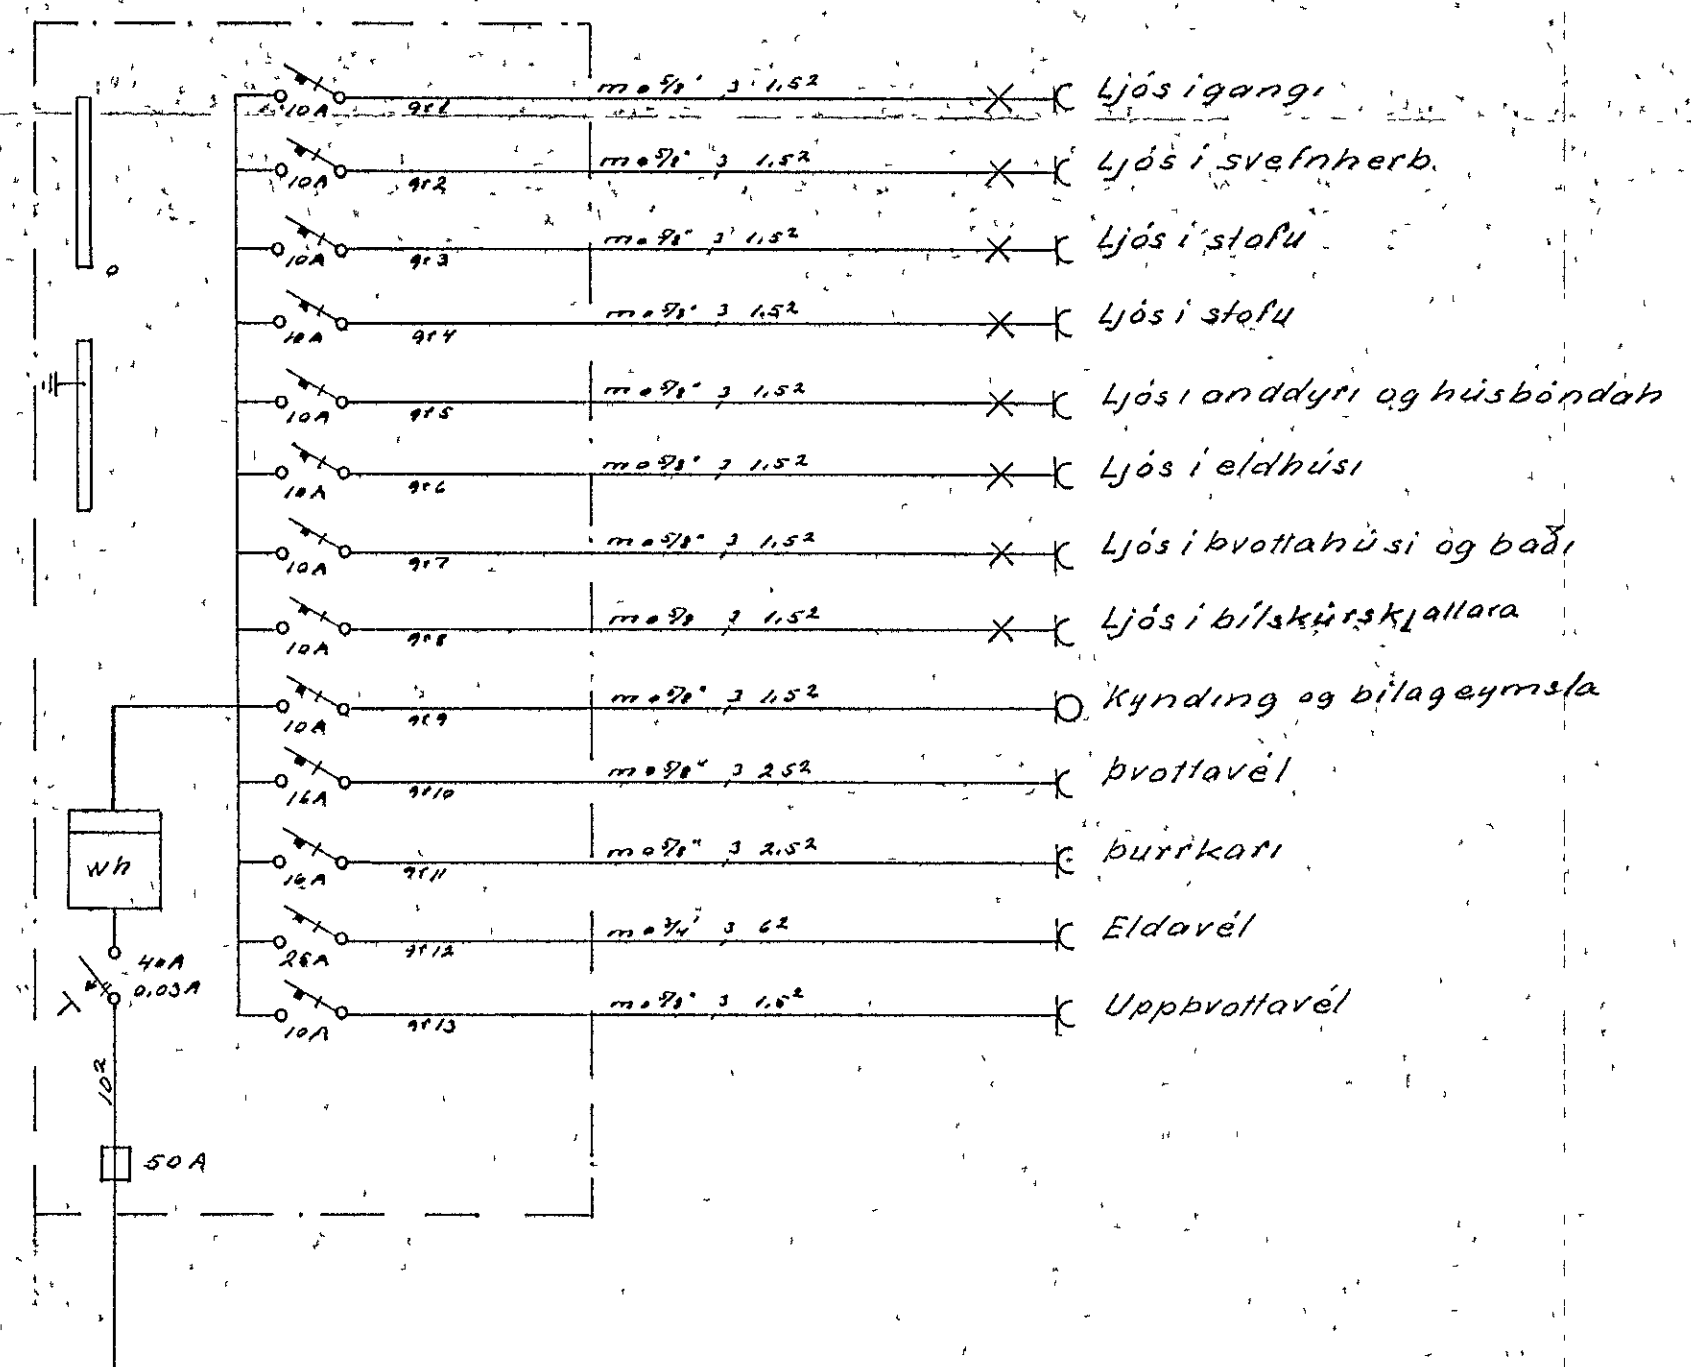 10A gr1 m ø 5/8" 3 1,5² Ljós í gangi
10A gr2 m ø 5/8" 3 1,5² Ljós í svefnherb.
10A gr3 m ø 5/8" 3 1,5² Ljós í stofu
10A gr4 m ø 5/8" 3 1,5² Ljós í stofu
10A gr5 m ø 5/8" 3 1,5² Ljós í anddyri og húsbóndah
10A gr6 m ø 5/8" 3 1,5² Ljós í eldhúsi
10A gr7 m ø 5/8" 3 1,5² Ljós í þvottahúsi og baði
10A gr8 m ø 5/8 3 1,5² Ljós í bílskúrskjallara
10A gr9 m ø 5/8" 3 1,5² Kynding og bílageymsla
16A gr10 m ø 5/8" 3 2,5² Þvottavél
16A gr11 m ø 5/8" 3 2,5² Þurrkari
25A gr12 m ø 3/4" 3 6² Eldavél
10A gr13 m ø 5/8" 3 1,5² Uppþvottavél
0
wh
40A
0,03A
10²
50A